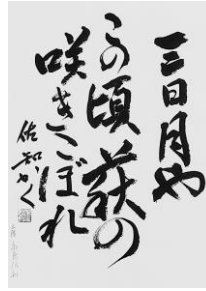 三日月や
この頃萩の
咲きこぼれ
佐知かく